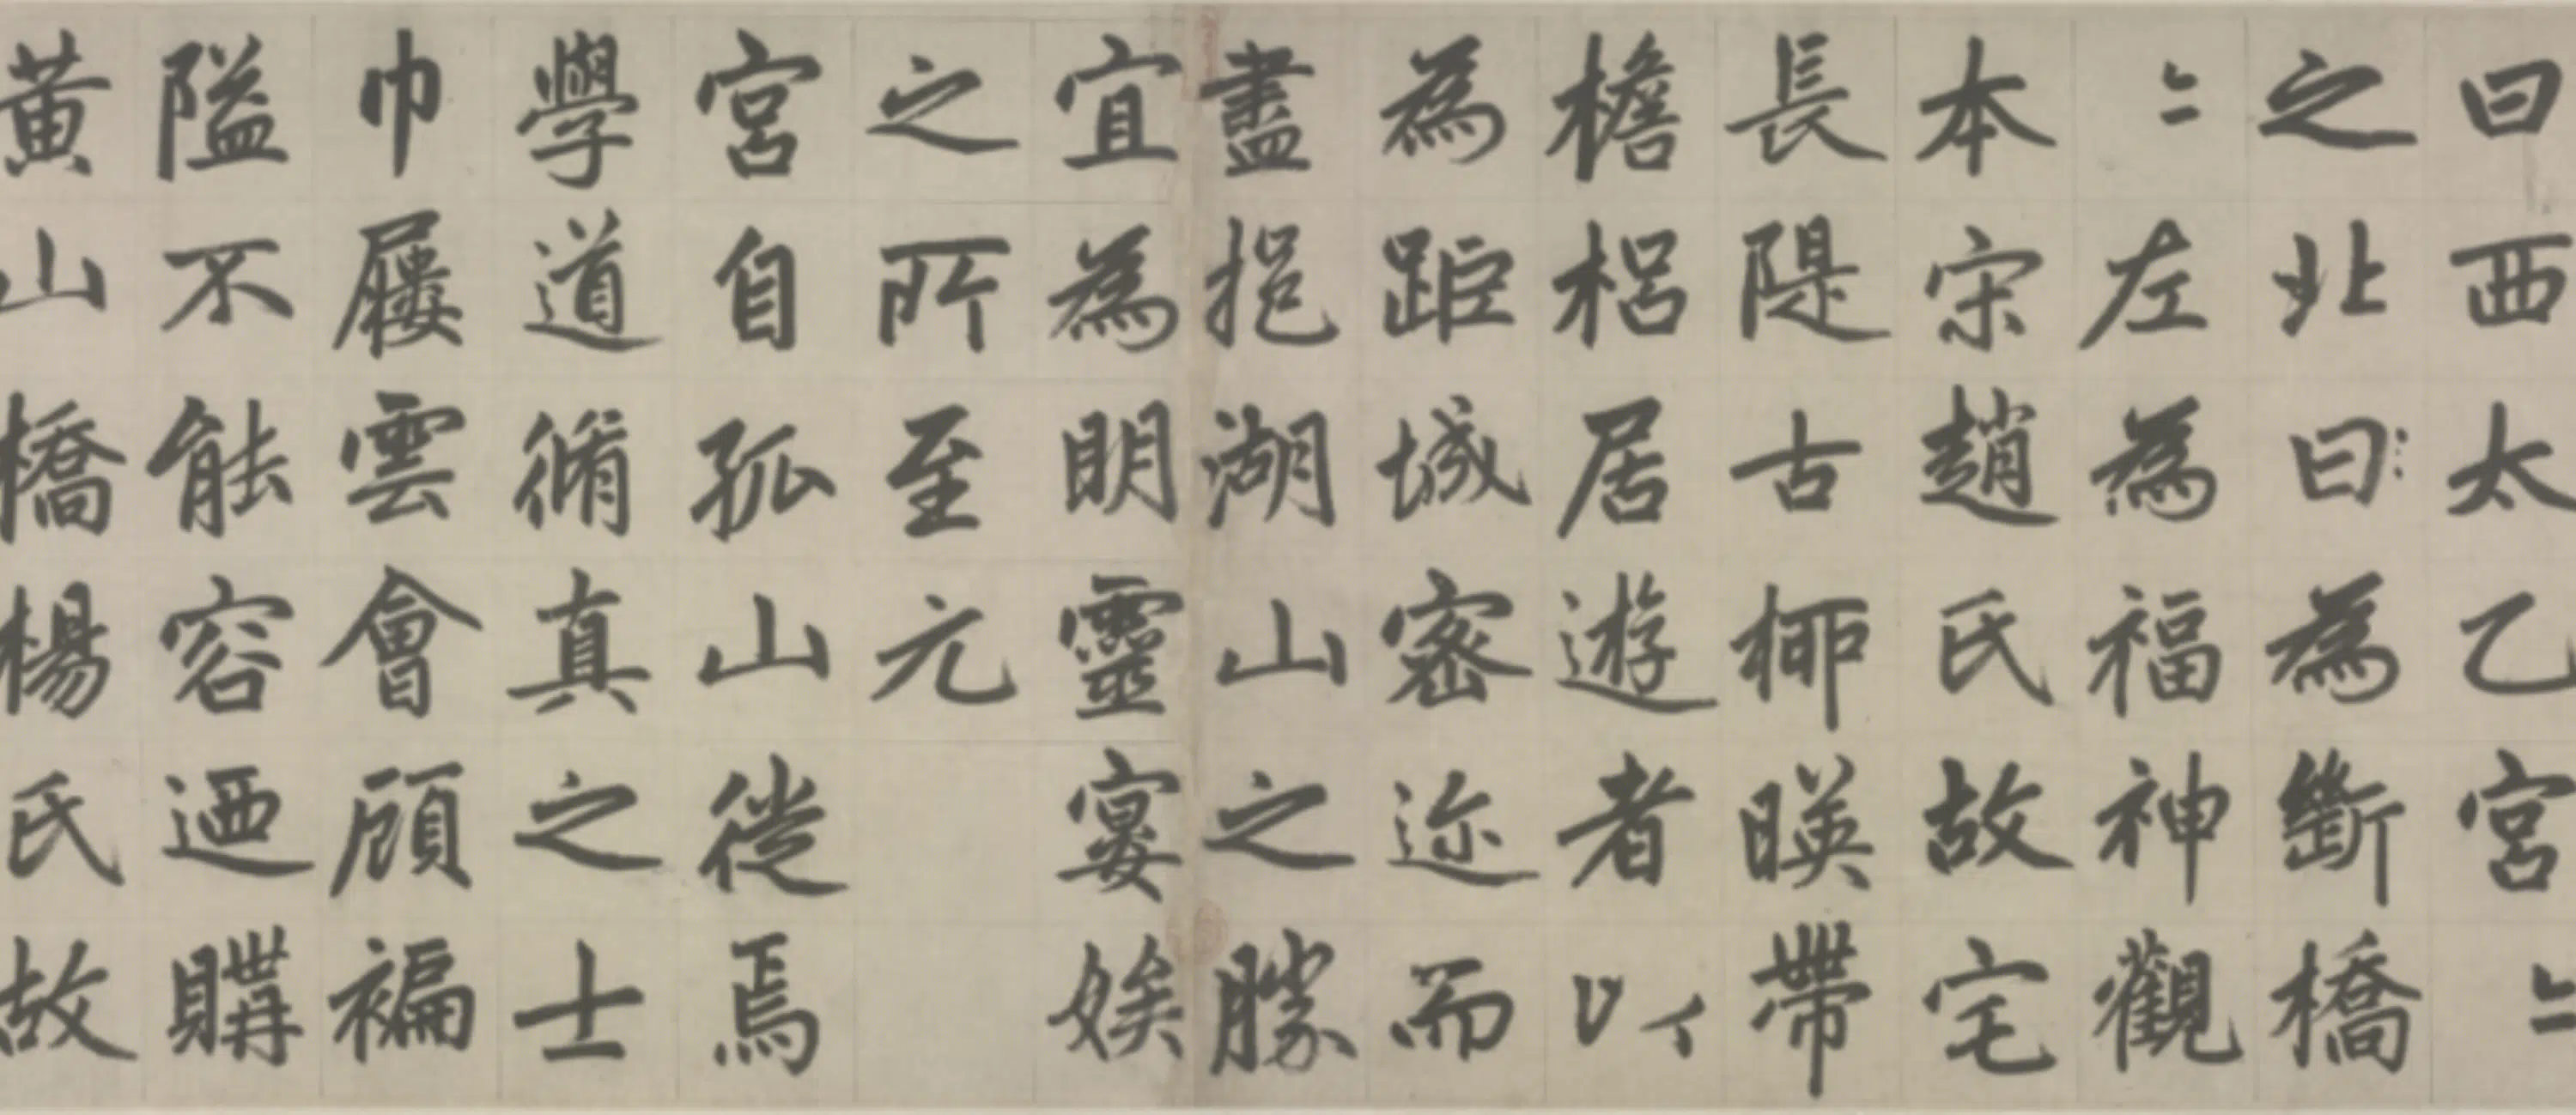 曰西太乙宮〻
之北曰為斷橋
〻左為福神觀
本宋趙氏故宅
長隄古柳暎帶
檐梠居遊者以
為距城密迩而
盡挹湖山之勝
宜為明靈宴娭
之所至元
宮自孤山徙焉
學道脩真之士
巾屨雲會顧褊
隘不能容迺購
黃山橋楊氏故